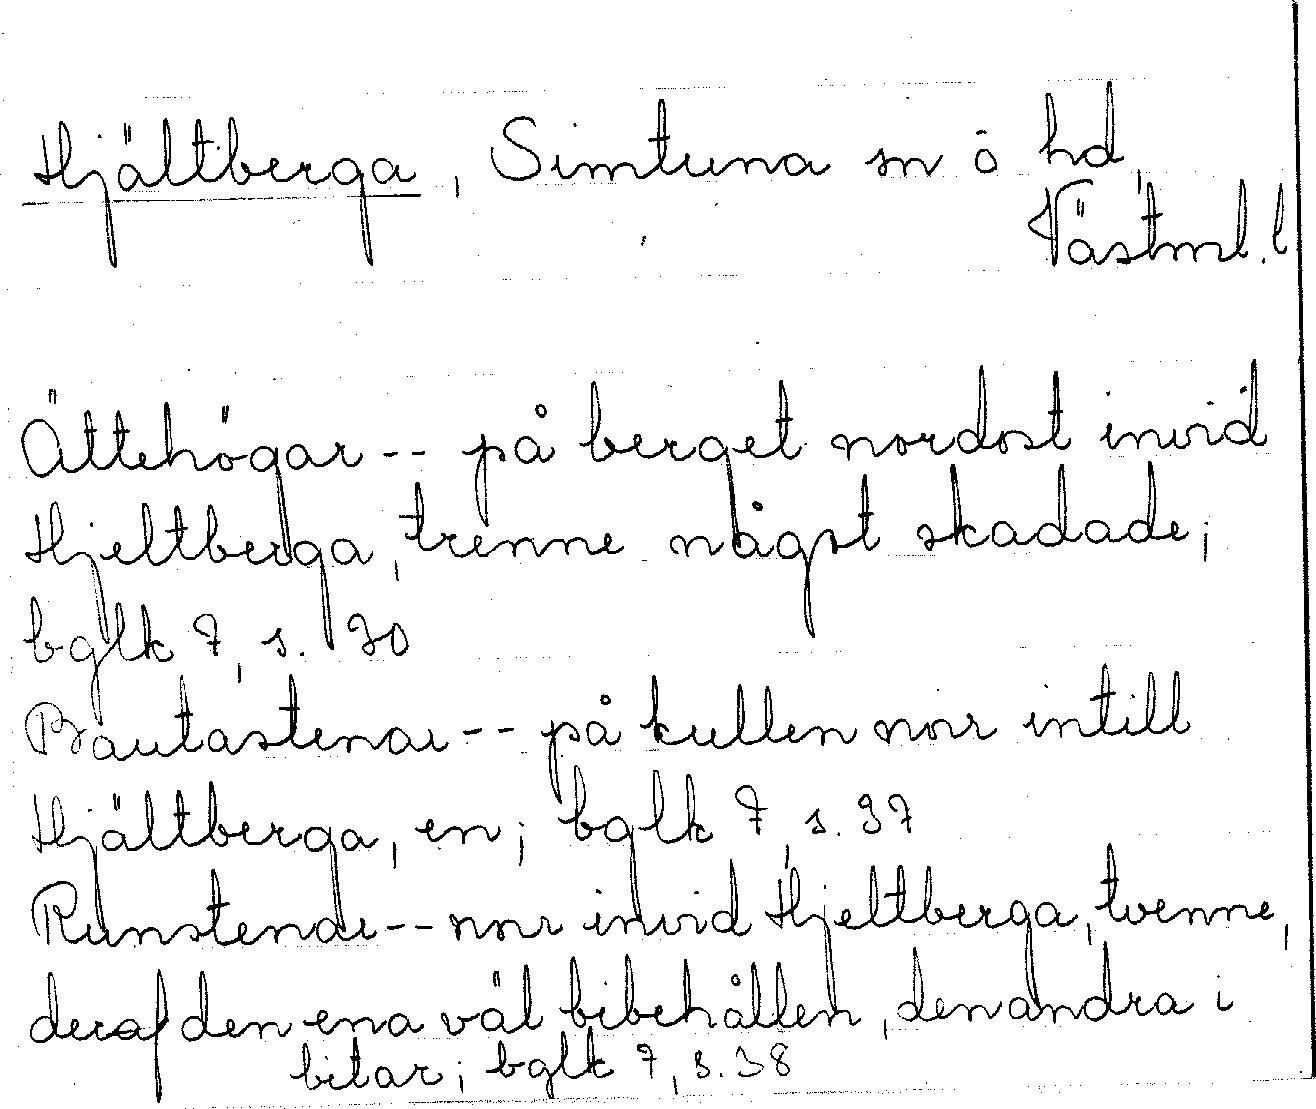 Hjältberga, Simtuna sn o hd,
Västml. l
Ättehögar -- på berget nordost invid
Hjeltberga, trenne något skadade;
bglk 7, s. 30
Bautastenar -- på kullen norr intill
Hjältberga, en; bglk 7, s. 37
Runstenar -- norr invid Hjeltberga, tvenne,
deraf den ena väl bibehållen, den andra i
bitar; bglk 7, s. 38